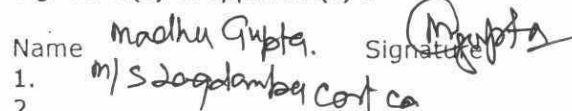 Name Madhu Gupta. Signature MGupta
1. M/S Jagdamba Cont Co
2